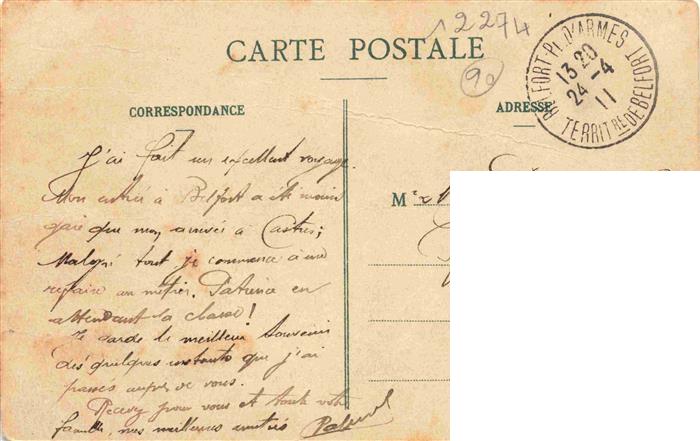 12274
CARTE POSTALE
90
BELFORT PL. D'ARMES
13 20
24 -4
11
TERRIT RE DE BELFORT
CORRESPONDANCE
ADRESSE
J'ai fait un excellent voyage.
Mon entrée à Belfort a été moins
gaie que mon arrivée à Castres;
Malgré tout je commence à me
refaire au métier. Patience en
attendant la classe!
Je garde le meilleur souvenir
des quelques instants que j'ai
passés auprès de vous.
Recevez pour vous et toute votre
famille, mes meilleures amitiés
M